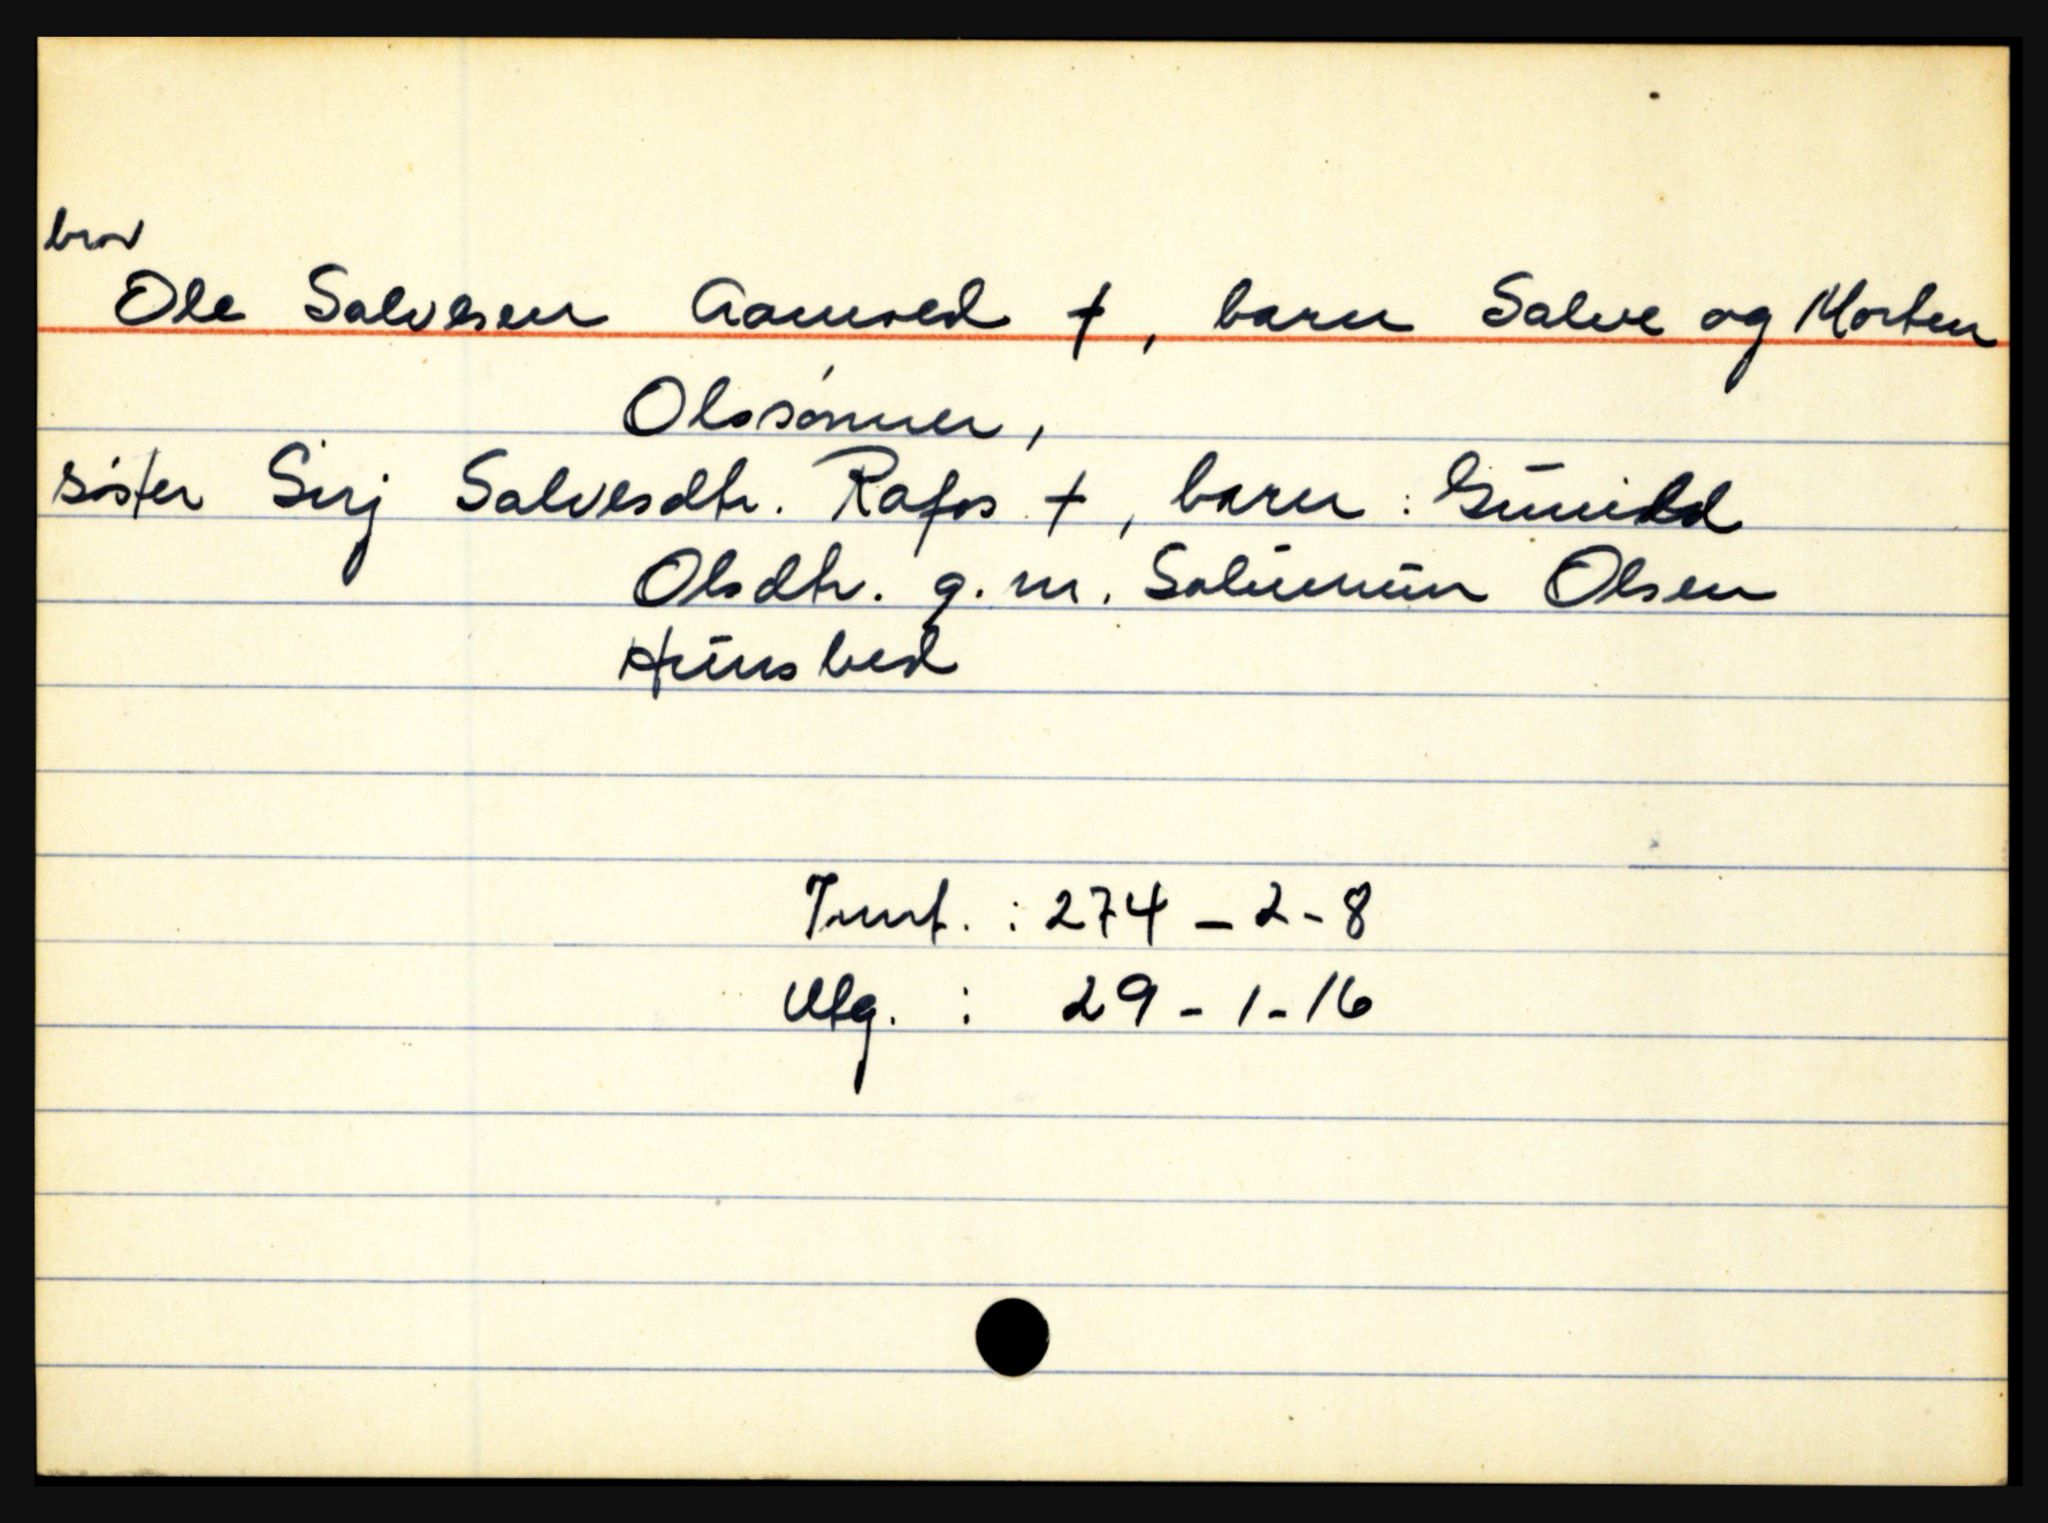 bror
Ole Salvesen Aamoed †, barn Salve og Morten
Olssønner,
søster Sirj Salvesdtr. Rafos †, barn : Gunild
Olsdtr. g. m. Salumun Olsen
Hunsbed
Innt. : 274 - 2 - 8
Utg. : 29 - 1 - 16